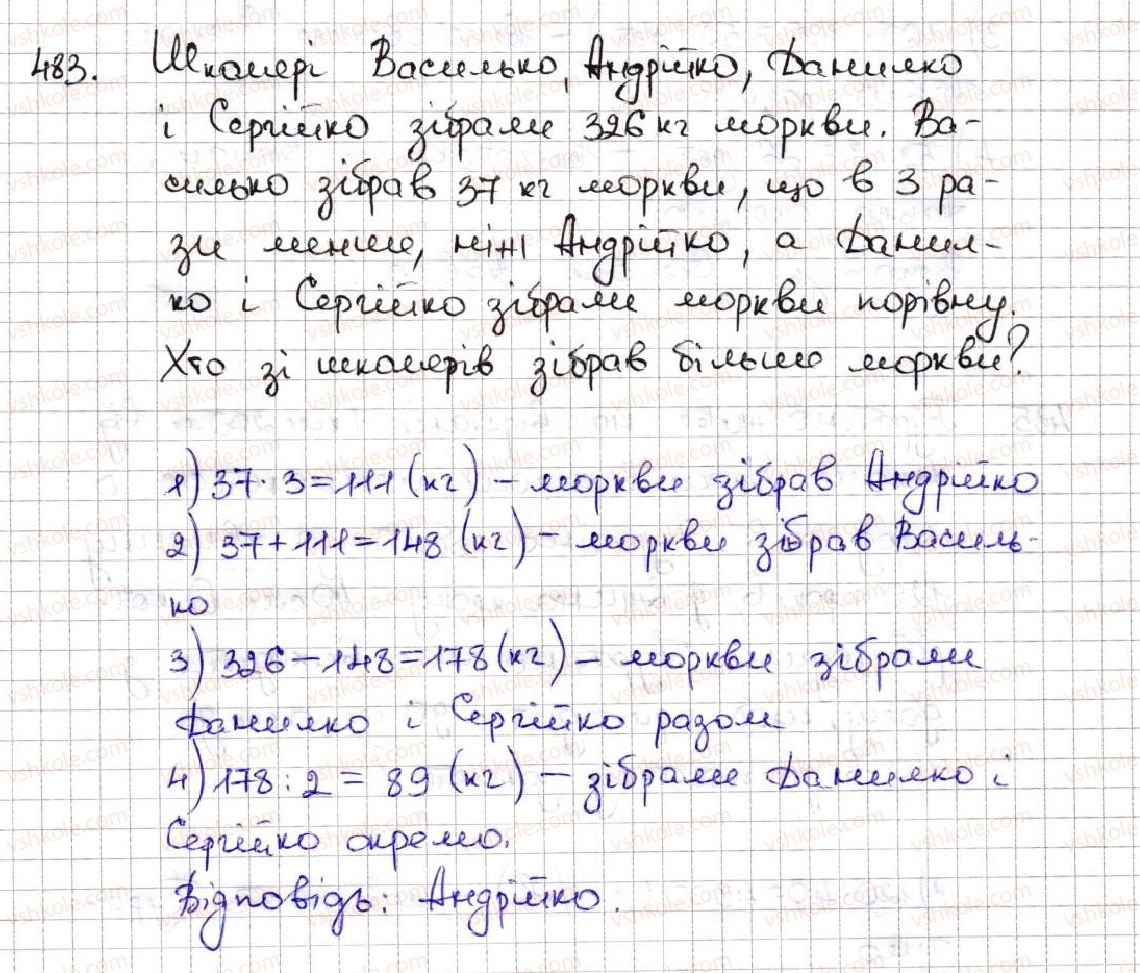 483. Школярі Василько, Андрійко, Данилко
і Сергійко зібрали 326 кг моркви. Ва-
силько зібрав 37 кг моркви, що в 3 ра-
зи менше, ніж Андрійко, а Данил-
ко і Сергійко зібрали моркви порівну.
Хто зі школярів зібрав більше моркви?
1) 37 · 3 = 111 (кг) – моркви зібрав Андрійко
2) 37 + 111 = 148 (кг) – моркви зібрав Василь-
ко
3) 326 – 148 = 178 (кг) – моркви зібрали
Данилко і Сергійко разом
4) 178 : 2 = 89 (кг) – зібрали Данилко і
Сергійко окремо.
Відповідь: Андрійко.